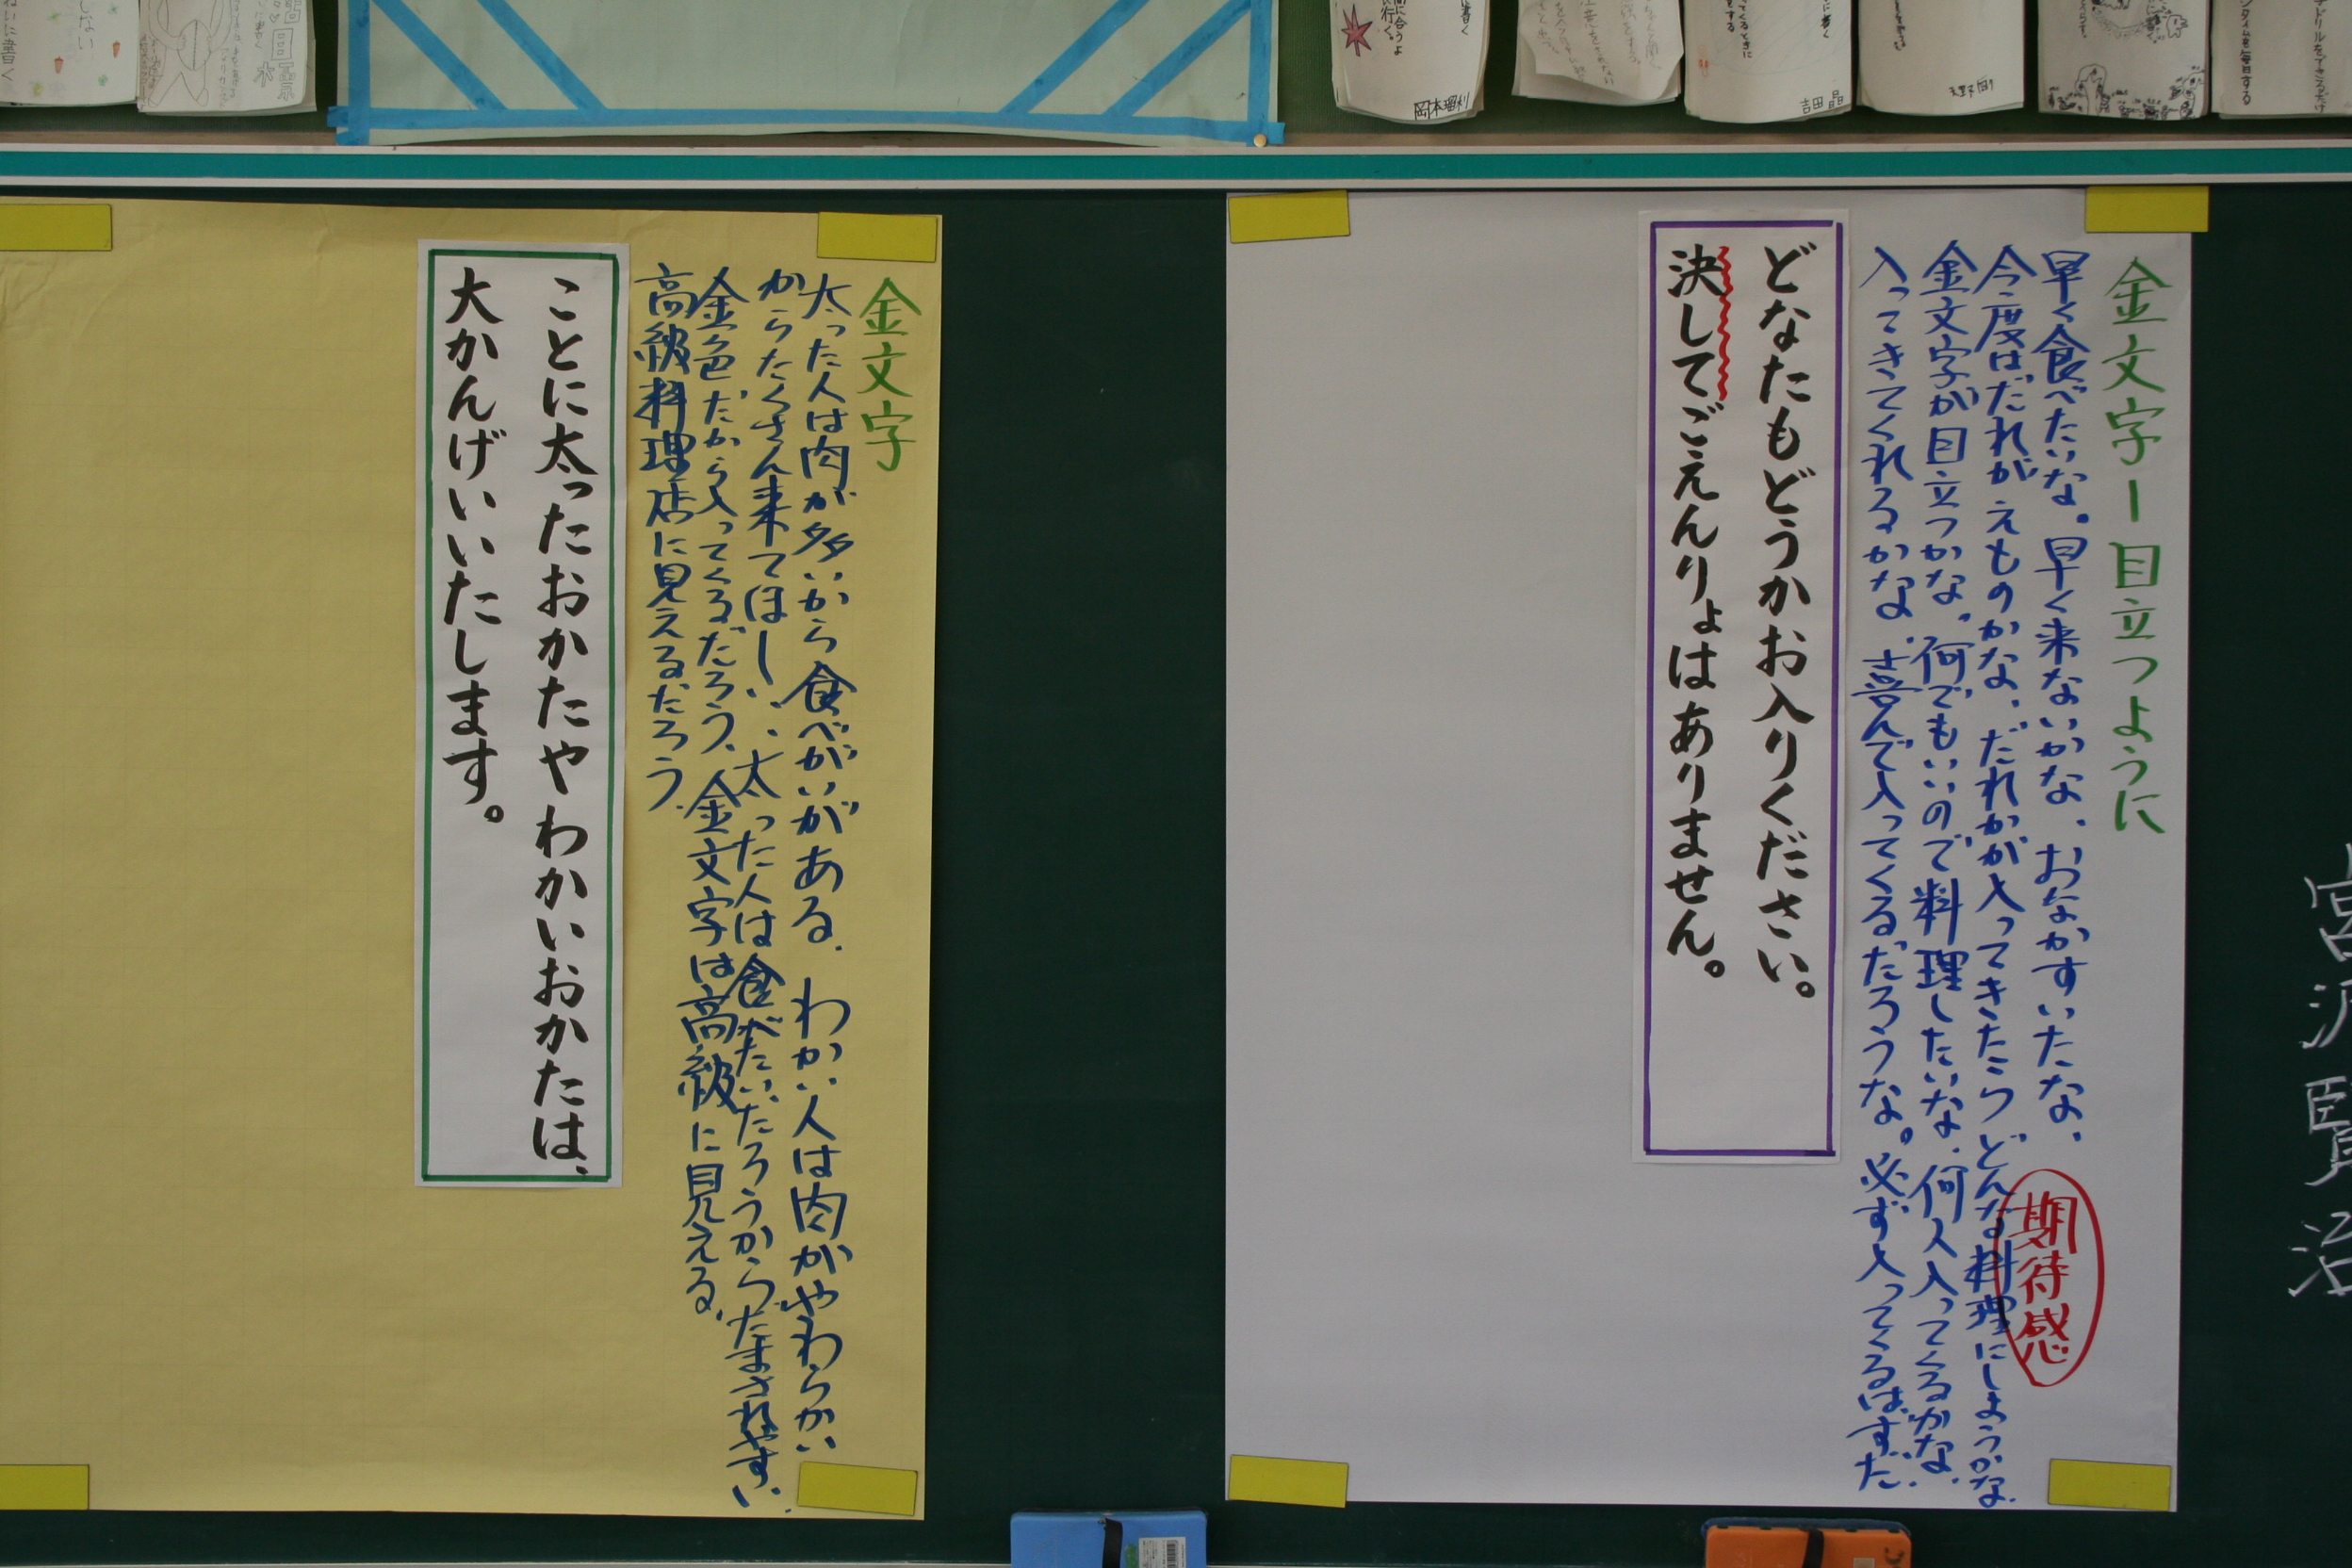 宮沢賢治
金文字ー目立つように
早く食べたいな。早く来ないかな、おなかすいたな、
期待感
今度はだれがえものかな、だれかが入ってきたらどんな料理にしようかな
金文字が目立つかな、何でもいいので料理したいな、何人入ってくるかな、
入ってきてくれるかな、喜んで入ってくるだろうな。必ず入ってくるはずだ
どなたもどうかお入りください。
決してごえんりょはありません。
金文字
太った人は肉が多いから食べがいがある、わかい人は肉がやわらかい
からたくさん来てほしい、太った人は食べたいだろうからだまされやすい、
金色だから入ってくるだろう、金文字は高級に見える、
高級料理店に見えるだろう、
ことに太ったおかたやわかいおかたは、
大かんげいいたします。
岡本瑠利
吉田晶